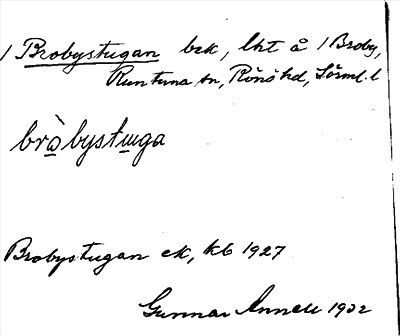 1 Brobystugan bzk, lht å 1 Broby,
Runtuna sn, Rönö hd, Sörml. l
bròbystuga
Brobystugan ek, kb 1927
Gunnar 1932